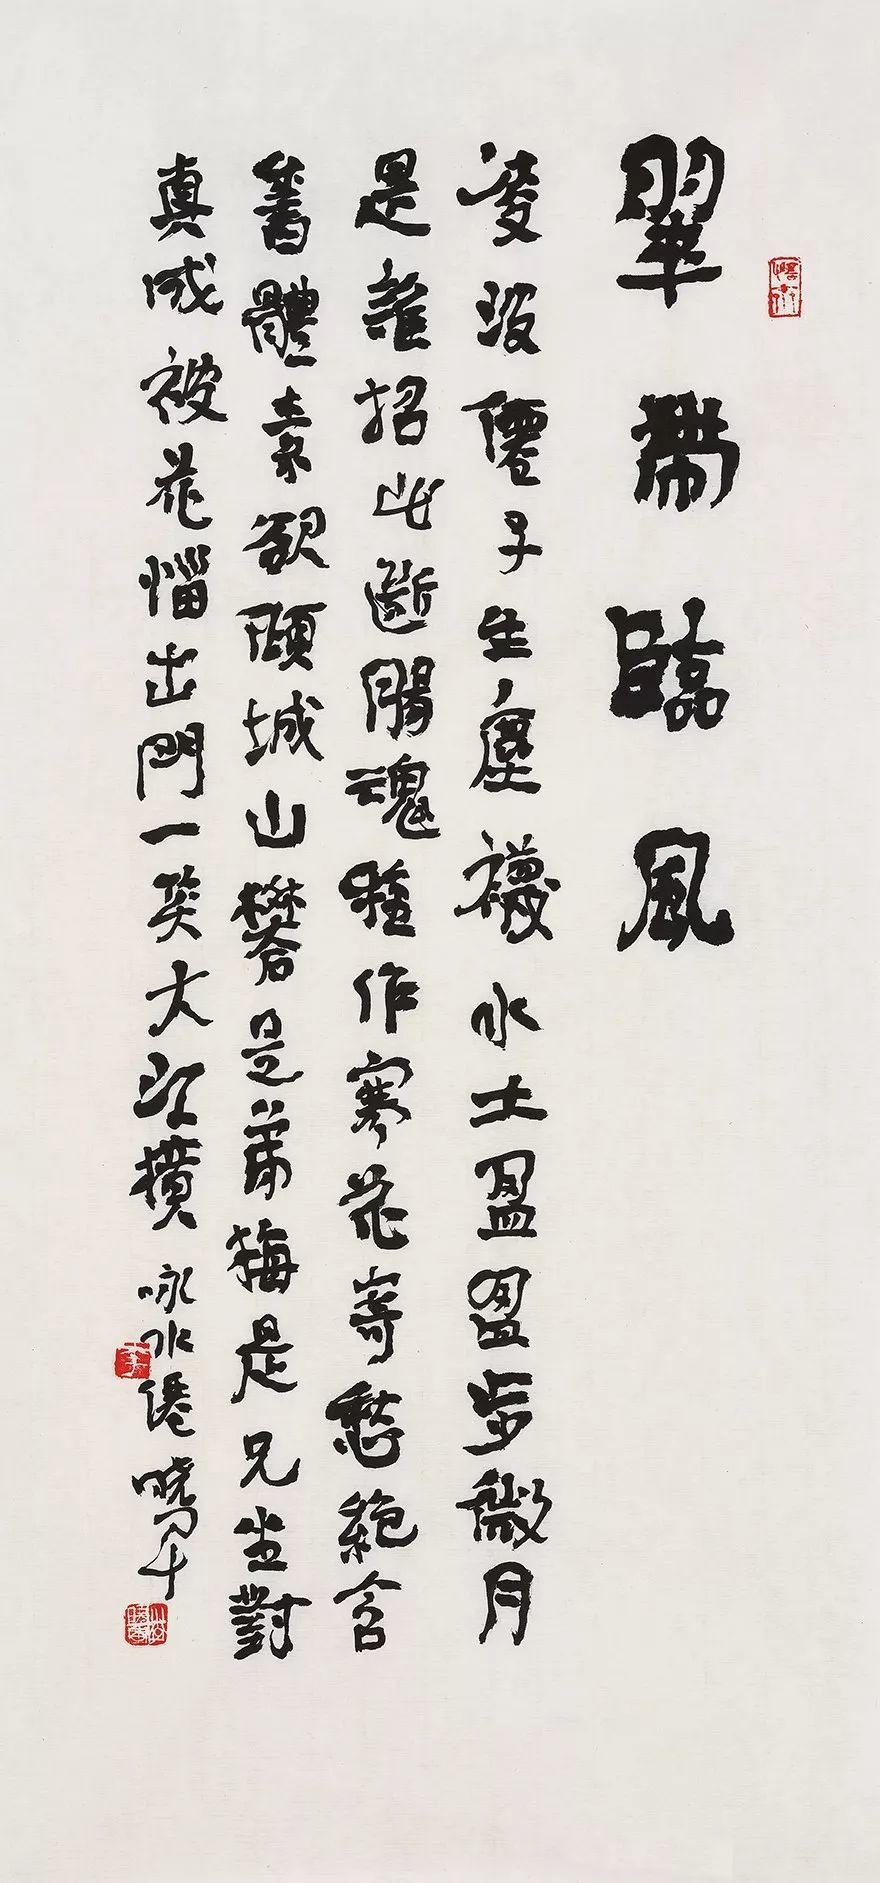 翠帶臨風
淩波僊子生塵襪水上盈盈步微月
是誰招此斷腸魂種作寒花寄愁絕含
香體素欲傾城山礬是弟梅是兄坐對
真成被花惱出門一笑大江橫 咏水僊 曉軍